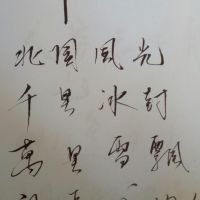 北国风光
千里冰封
萬里雪飄